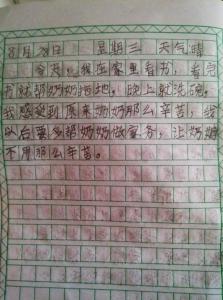 8月29日 星期三 天气晴
今天，我在家里看书，看完
书就帮奶奶拖地，晚上就洗碗。
我感受到原来奶奶那么辛苦，我
以后要多帮奶奶做家务，让奶奶
不用那么辛苦。